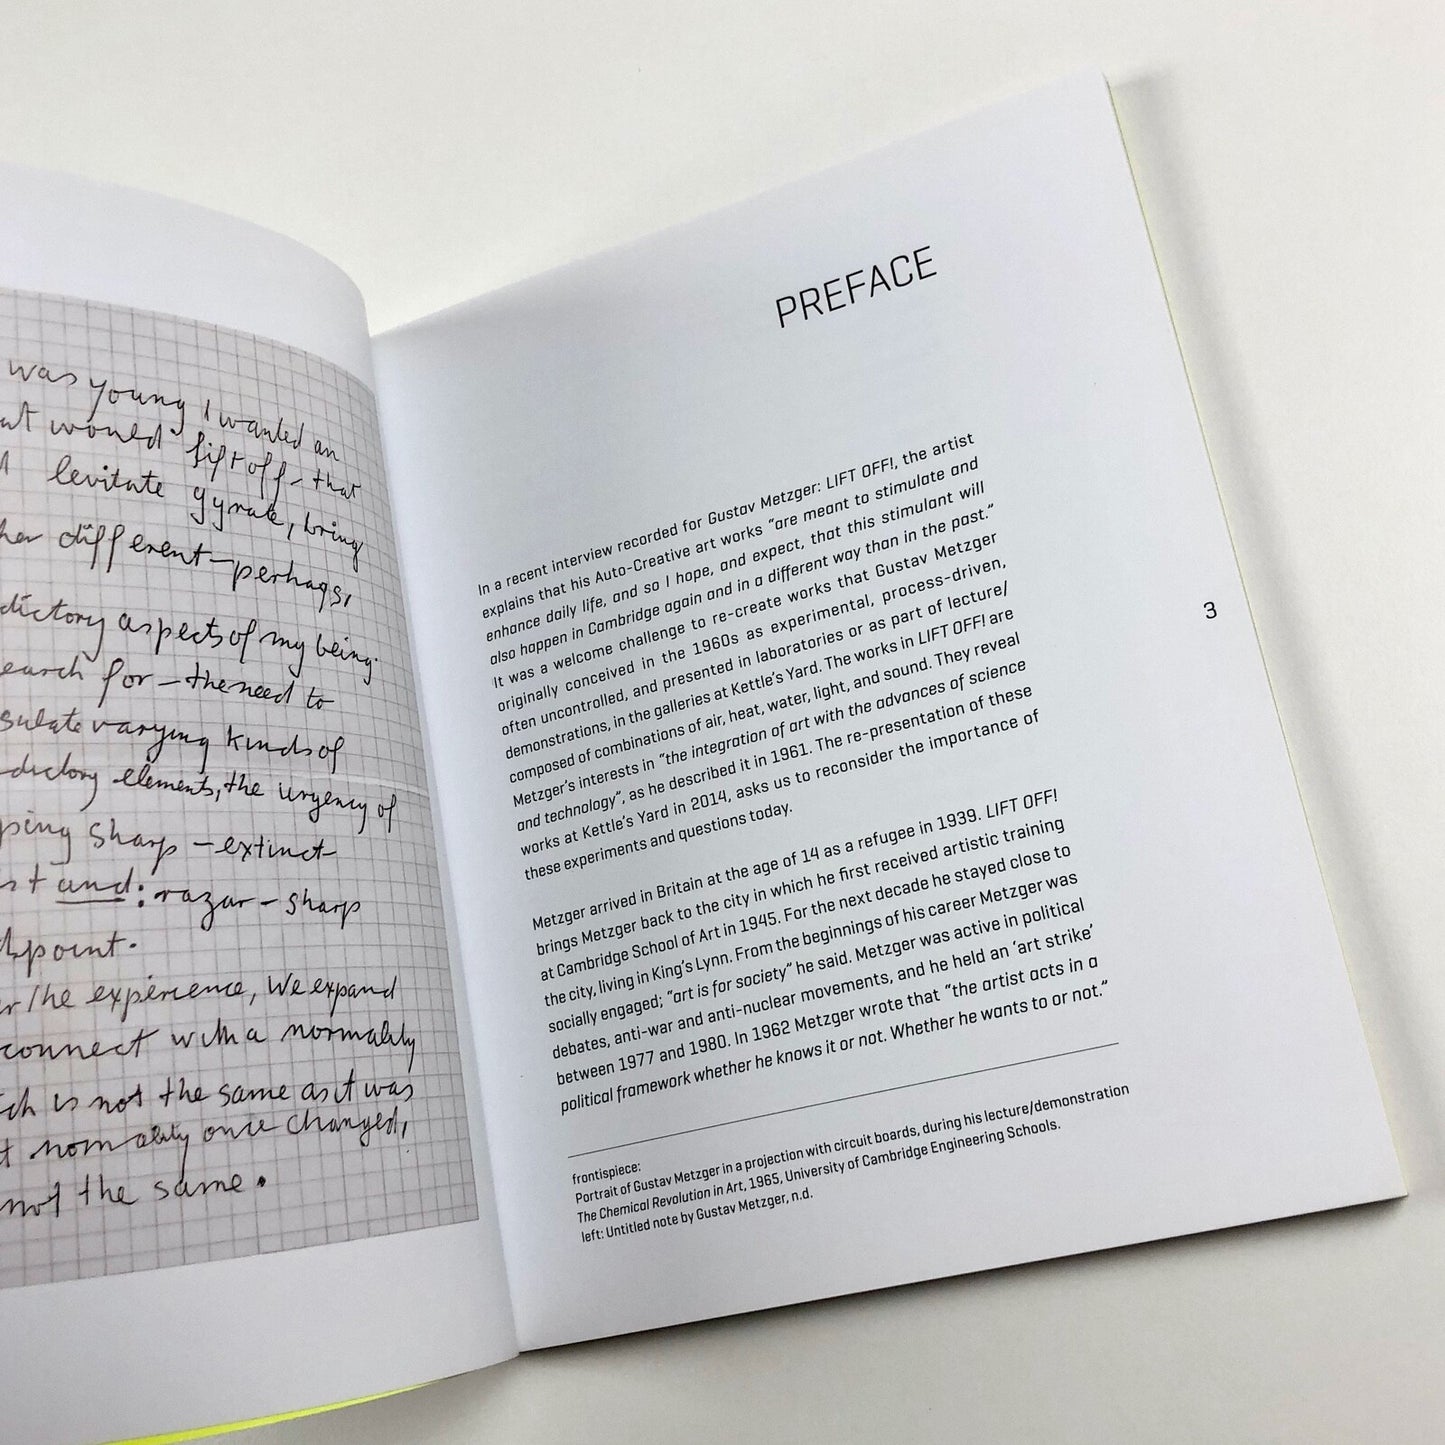 was young I wanted an
would lift off – that
levitate gyrate, bring
different – perhaps,
aspects of my being.
for – the need to
varying kinds of
elements, the urgency of
sharp – extinct –
and: razar – sharp
the experience, We expand
connect with a normality
is not the same as it was
normality once changed,
not the same.
PREFACE
In a recent interview recorded for Gustav Metzger: LIFT OFF!, the artist
explains that his Auto-Creative art works “are meant to stimulate and
enhance daily life, and so I hope, and expect, that this stimulant will
also happen in Cambridge again and in a different way than in the past.”
It was a welcome challenge to re-create works that Gustav Metzger
originally conceived in the 1960s as experimental, process-driven,
often uncontrolled, and presented in laboratories or as part of lecture/
demonstrations, in the galleries at Kettle’s Yard. The works in LIFT OFF! are
composed of combinations of air, heat, water, light, and sound. They reveal
Metzger’s interests in “the integration of art with the advances of science
and technology”, as he described it in 1961. The re-presentation of these
works at Kettle’s Yard in 2014, asks us to reconsider the importance of
these experiments and questions today.
Metzger arrived in Britain at the age of 14 as a refugee in 1939. LIFT OFF!
brings Metzger back to the city in which he first received artistic training
at Cambridge School of Art in 1945. For the next decade he stayed close to
the city, living in King’s Lynn. From the beginnings of his career Metzger was
socially engaged; “art is for society” he said. Metzger was active in political
debates, anti-war and anti-nuclear movements, and he held an ‘art strike’
between 1977 and 1980. In 1962 Metzger wrote that “the artist acts in a
political framework whether he knows it or not. Whether he wants to or not.”
frontispiece:
Portrait of Gustav Metzger in a projection with circuit boards, during his lecture/demonstration
The Chemical Revolution in Art, 1965, University of Cambridge Engineering Schools.
left: Untitled note by Gustav Metzger, n.d.
3